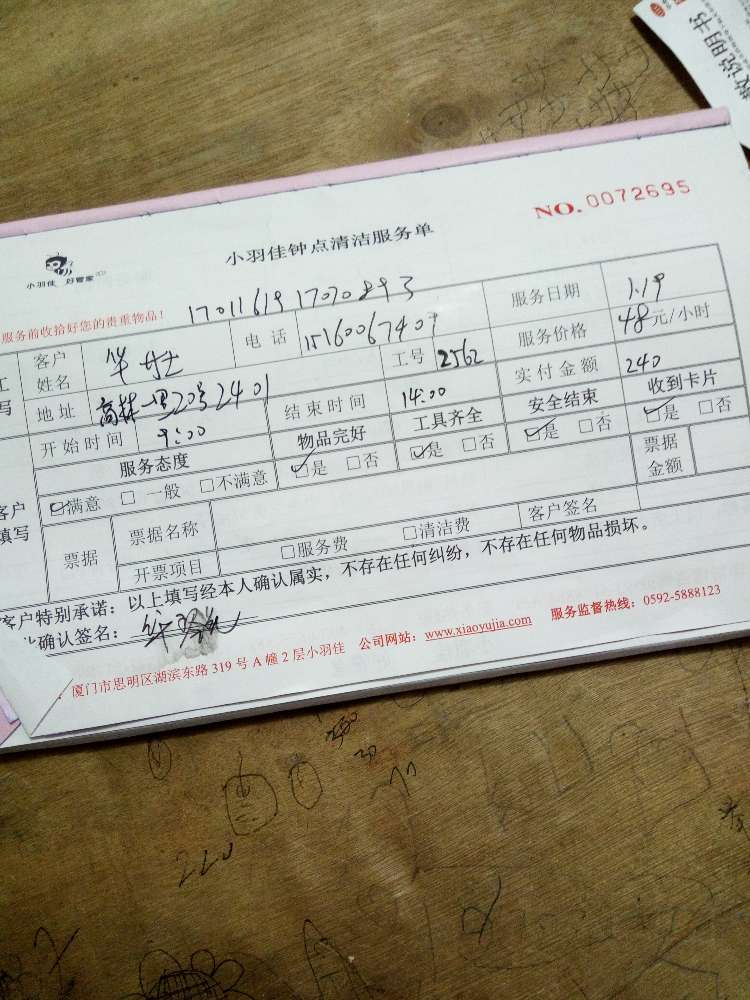 说明书
NO. 0072695
小羽佳钟点清洁服务单
小羽佳 好管家
服务前收拾好您的贵重物品！ 1701161917070893
客户姓名 电话 15160067407 服务日期 1.19
地址 高林一里20号2401 工号 2562 服务价格 48元/小时
开始时间 9:00 结束时间 14:00 实付金额 240
服务态度 物品完好 工具齐全 安全结束 收到卡片
☑满意 □一般 □不满意 ☑是 □否 ☑是 □否 ☑是 □否 ☑是 □否
客户填写
票据 票据名称 票据金额
开票项目 □服务费 □清洁费 客户签名
客户特别承诺：以上填写经本人确认属实，不存在任何纠纷，不存在任何物品损坏。
确认签名：
厦门市思明区湖滨东路 319 号 A 幢 2 层小羽佳 公司网站：www.xiaoyujia.com 服务监督热线：0592-5888123